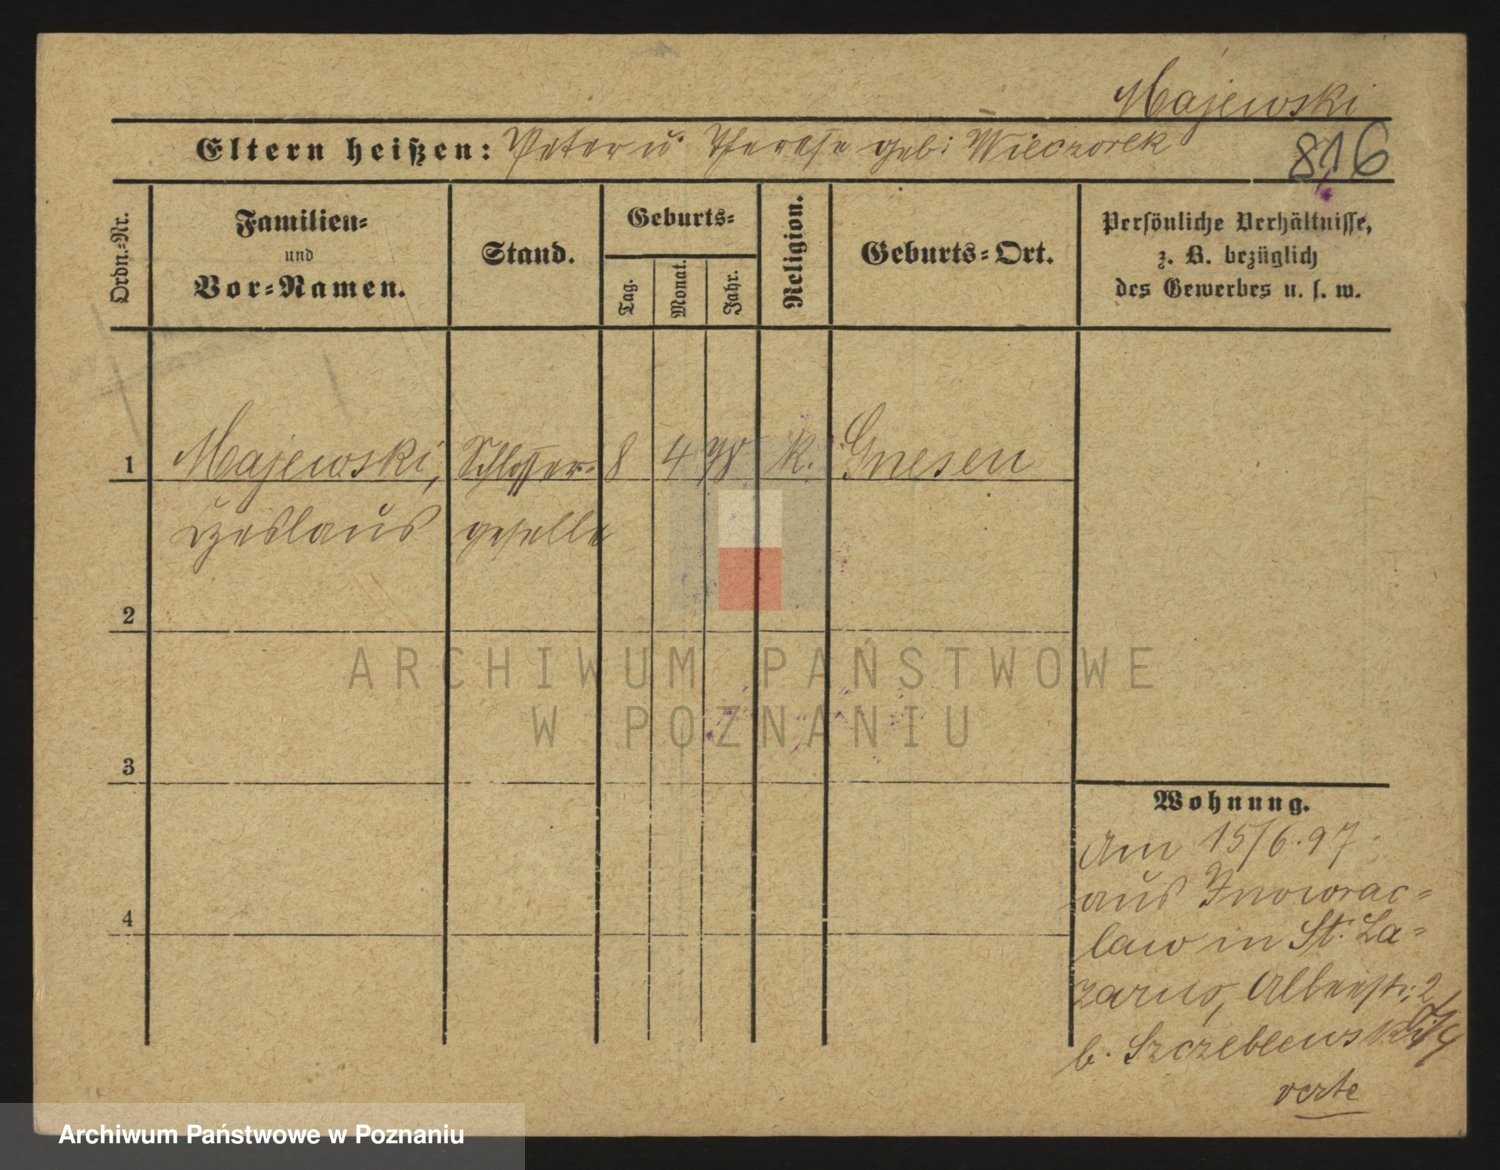 Majewski
Eltern heißen: Peter u Therese geb: Wieczorek
816
Ordn.-Nr.
Familien-
und
Vor-Namen.
Stand.
Geburts-
Tag.
Monat.
Jahr.
Religion.
Geburts-Ort.
Persönliche Verhältnisse,
z. B. bezüglich
des Gewerbes u. s. w.
1 Majewski, Schlosser- 8 4 78 k. Gnesen
Czeslaus geselle
2
ARCHIWUM PAŃSTWOWE
W POZNANIU
3
Wohnung.
Am 15/6.97.
aus Inowrac-
law in St. La-
zarus, 2
b. Szczeblewski
4
verte
Archiwum Państwowe w Poznaniu